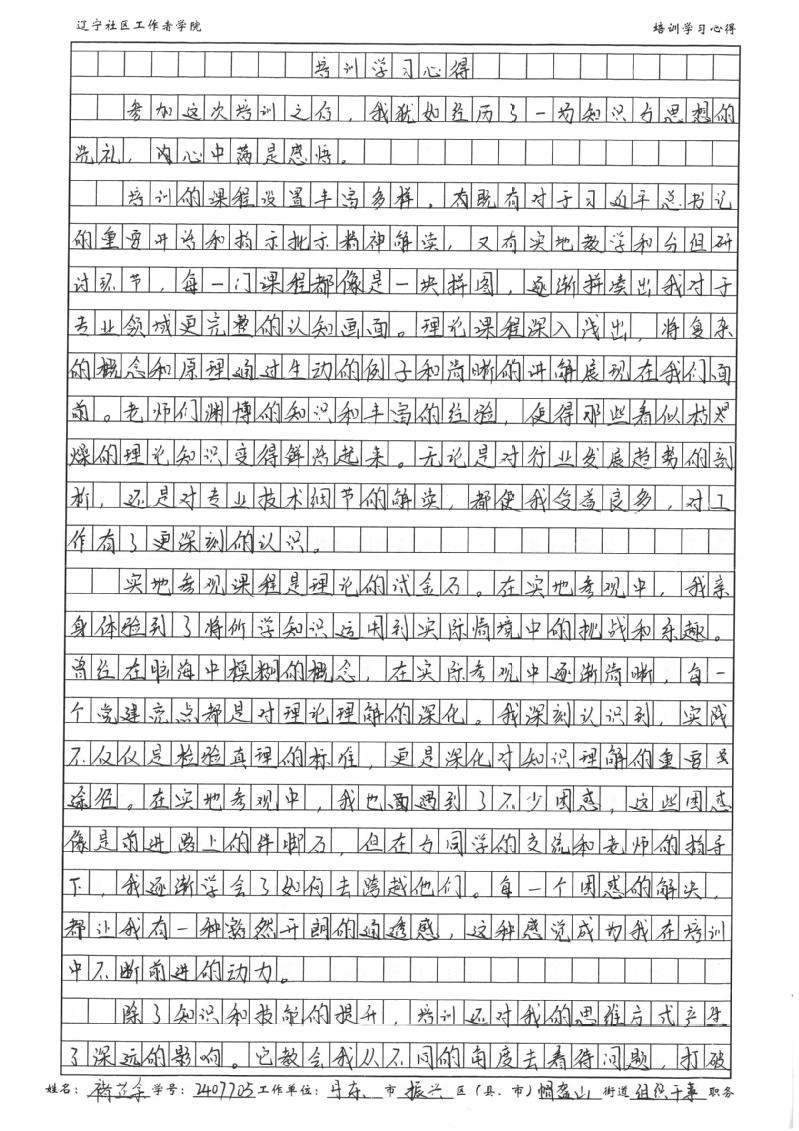 辽宁社区工作者学院 培训学习心得
培训学习心得
参加这次培训之后，我犹如经历了一场知识与思想的
洗礼，内心中满是感悟。
培训的课程设置丰富多样，有既有对于习近平总书记
的重要讲话和指示批示精神解读，又有实地教学和分组研
讨环节，每一门课程都像是一块拼图，逐渐拼凑出我对于
专业领域更完整的认知画面。理论课程深入浅出，将复杂
的概念和原理通过生动的例子和清晰的讲解展现在我们面
前。老师们渊博的知识和丰富的经验，使得那些看似枯燥
燥的理论知识变得鲜活起来。无论是对行业发展趋势的剖
析，还是对专业技术细节的解读，都使我受益良多，对工
作有了更深刻的认识。
实地参观课程是理论的试金石。在实地参观中，我亲
身体验到了将所学知识运用到实际情境中的挑战和乐趣。
曾经在脑海中模糊的概念，在实际参观中逐渐清晰，每一
个党建亮点都是对理论理解的深化。我深刻认识到，实践
不仅仅是检验真理的标准，更是深化对知识理解的重要
途径。在实地参观中，我也面遇到了不少困惑，这些困惑
像是前进路上的绊脚石，但在与同学的交流和老师的指导
下，我逐渐学会了如何去跨越他们。每一个困惑的解决，
都让我有一种豁然开朗的通透感，这种感觉成为我在培训
中不断前进的动力。
除了知识和技能的提升，培训还对我的思维方式产生
了深远的影响。它教会我从不同的角度去看待问题，打破
姓名： 学号：2407705 工作单位：丹东 市 振兴 区（县、市）帽盔山 街道 组织干事 职务